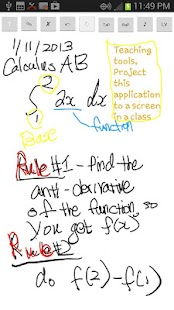 11:49 PM
1/11/2013
Calculus AB
2
∫ 2x dx
1
function
Base
Teaching
tools.
Project
this
application
to a screen
in a class
Rule #1 - find the
anti-derivative
of the function, so
you get f(x)
Rule #2
do f(2)-f(1)